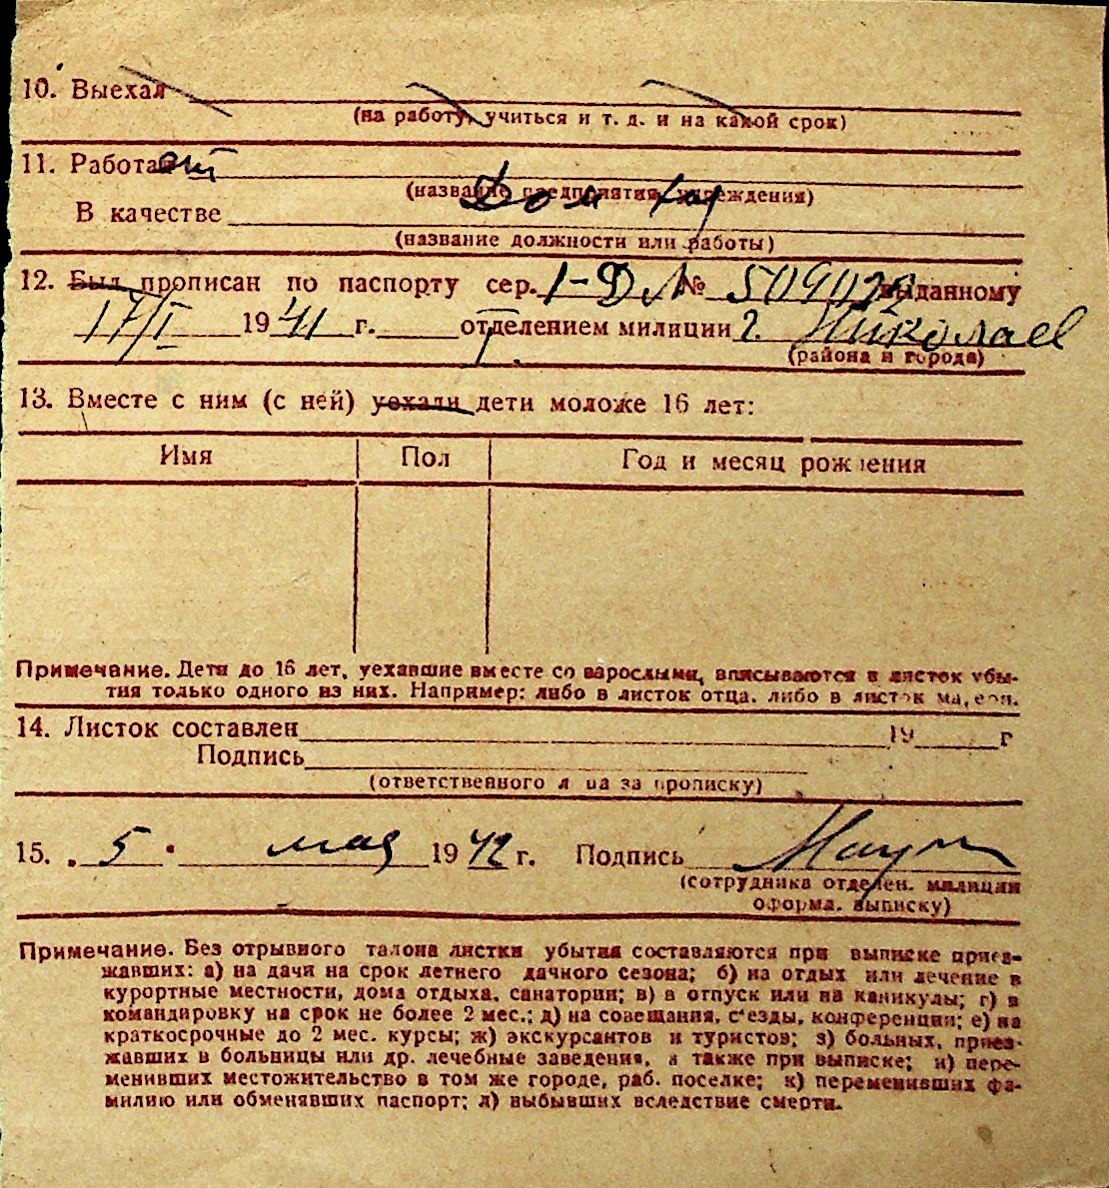 10. Выехал
(на работу, учиться и т. д. и на какой срок)
11. Работает
(название предприятия, учреждения)
Дом хоз
В качестве
(название должности или работы)
12. Был прописан по паспорту сер. 1-Д № выданному
17/I 1941 г. отделением милиции г. Николаев
(района и города)
13. Вместе с ним (с ней) уехали дети моложе 16 лет:
Имя Пол Год и месяц рождения
Примечание. Дети до 16 лет, уехавшие вместе со взрослыми, вписываются в листок убы-
тия только одного из них. Например: либо в листок отца, либо в листок матери.
14. Листок составлен 19 г
Подпись
(ответственного лица за прописку)
15. 5 мая 1942 г. Подпись
(сотрудника отделен. милиции
оформл. выписку)
Примечание. Без отрывного талона листки убытия составляются при выписке приез-
жавших: а) на дачи на срок летнего дачного сезона; б) на отдых или лечение в
курортные местности, дома отдыха, санатории; в) в отпуск или на каникулы; г) в
командировку на срок не более 2 мес.; д) на совещания, с'езды, конференции; е) на
краткосрочные до 2 мес. курсы; ж) экскурсантов и туристов; з) больных, приез-
жавших в больницы или др. лечебные заведения, а также при выписке; и) пере-
менивших местожительство в том же городе, раб. поселке; к) переменивших фа-
милию или обменявших паспорт; л) выбывших вследствие смерти.